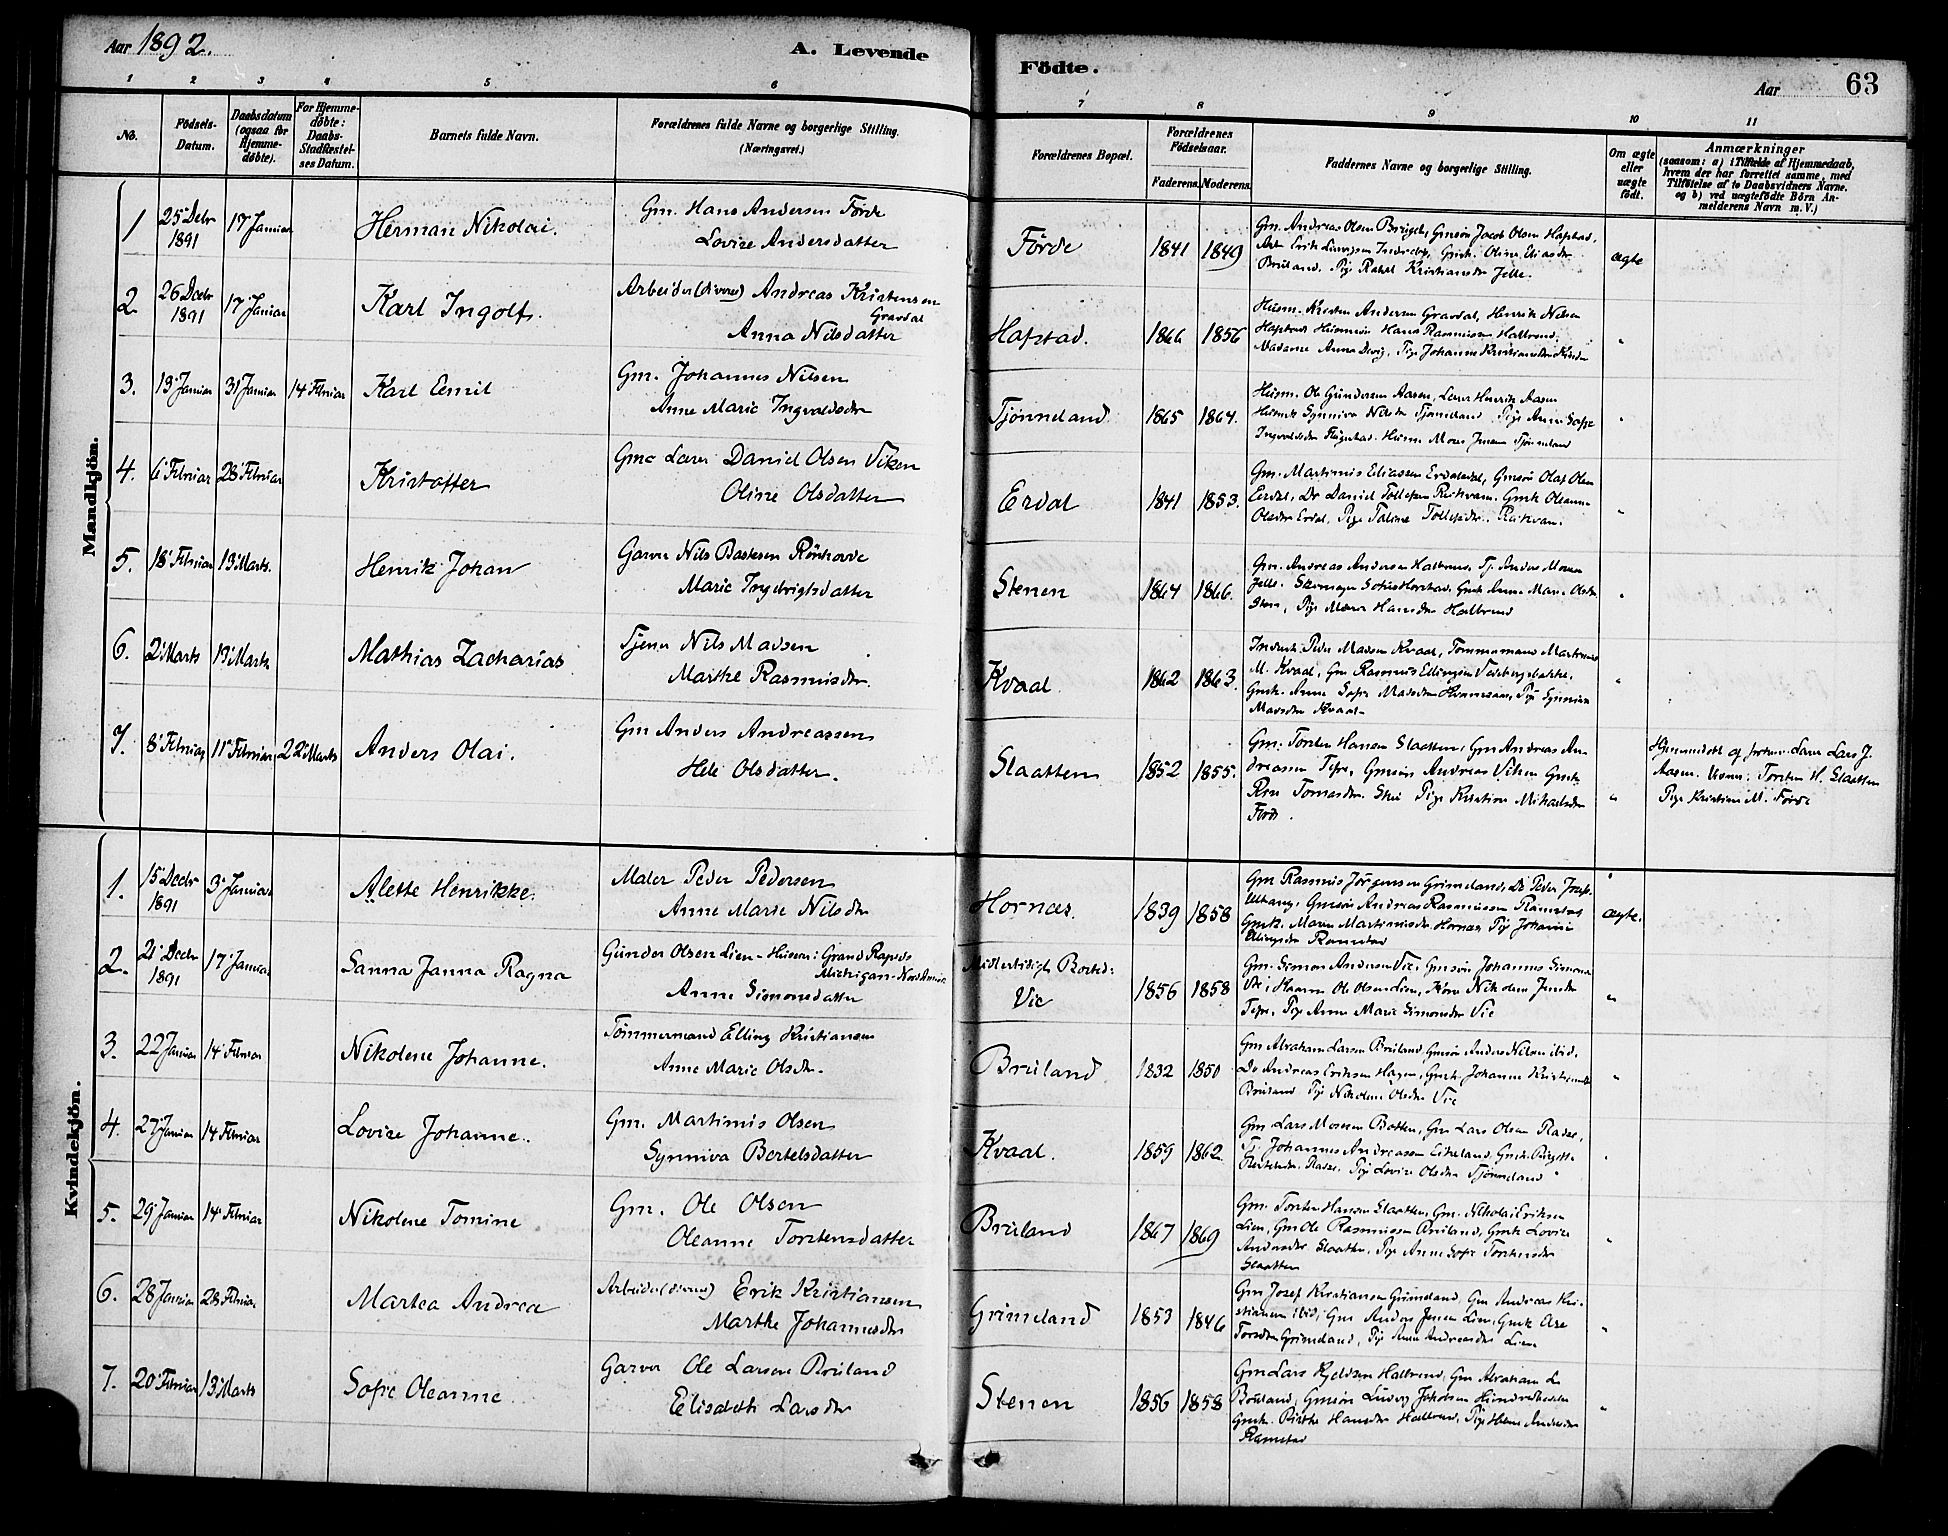 Aar 1892. A. Levende Födte. Aar 63
1 2 3 4 5 6 7 8 9 10 11
No. Födsels-Datum. Daabsdatum (ogsaa for Hjemme-döbte). For Hjemme-döbte: Daabs-Stadfæstel-ses Datum. Barnets fulde Navn. Forældrenes fulde Navne og borgerlige Stilling. (Næringsvei.) Forældrenes Bopæl. Forældrenes Födselsaar. Faderens. Moderens. Faddernes Navne og borgerlige Stilling. Om ægte eller uægte födt. Anmærkninger (saasom: a) i Tilfælde af Hjemmedaab, hvem der har forrettet samme, med Tilföielse af to Daabsvidners Navne. og b) ved uægtefödte Börn An-melderens Navn m. V.)
Mandkjön.
1 25 Debr 1891 17 Januar Herman Nikolai. Gm. Hans Andersen Förde
Lovise Andersdatter Förde 1841 1849 ægte
Gm. Andreas Olsen Gmsön Jacob Olsen Hafstad,
Brüland. Pige Rakel Kristiansdr
2 26 Decbr 1891 17 Januar Karl Ingolf. Arbeider (diverse) Andreas Kristensen Gravdal
Anna Nilsdatter Hafstad. 1866 1856 "
Husm. Kristen Andersen Gravdal, Henrik Nilsen
Hafstad Hans Rasmussen Halbrend,
Madame Anna Pige Johanne
3. 13 Januar 31 Januar 14 Februar Karl Emil Gm. Johannes Nilsen
Anne Marie Ingvaldsdr Tjønneland 1865 1864. "
Husm. Ole Gundersen Aasen, Lærer Henrik Aasen
Synniva Nilsdr Tjønneland Pige Anne Sofie
4. 6 Februar 28 Februar Kristoffer Gm & Lærer Daniel Olsen Viken
Oline Olsdatter Erdal 1841 1853. "
Gm. Martinus Eliassen Erdal, Gmsön Olaf Olsen
Erdal, Do Daniel Tollefsen
Olsdr Erdal, Pige Tollefsdr.
5. 18 Februar 13 Marts. Henrik Johan Garver Nils Bastesen
Marie Ingebrigtsdatter Stenen 1864 1866. "
Gm. Andreas Andersen Halbrend, Tj. Anders Monsen
Anne Marie Olsdr
Sten, Pige Hansdr Halbrend
6. 2 Marts 13 Marts Mathias Zacharias Tjener Nils Madsen
Marthe Rasmusdr. Kvaal 1862 1863. "
Peder Madsen Kvaal, Tømmermand Martinus
M. Kvaal, Gm Rasmus Ellingsen
Gmk. Anne Sofie Madsdr Pige Synniva
Madsdr Kvaal
7. 8 Februar 11 Februar 22 Marts Anders Olai. Gm Anders Andreassen
Olsdatter. Slaatten 1852 1855. "
Gm. Torsten Hansen Slaatten, Gm Andreas An-
dreassen Tefre, Gmsön Andreas Viken Gmk
Tomasdr. Pige Kristine Mikaelsdr
Förde.
Hjemmedöbt af Lærer Lars J.
Aasen. Torsten H. Slaatten
Pige Kristine M. Förde
Kvindekjön.
1. 15 Decbr 1891 3 Januar Alette Henrikke. Maler Peder Pedersen
Anne Marie Nilsdr Hornæs. 1839 1858 ægte.
Gm Rasmus Jörgensen Grimeland, Do Peder
Gmsön Andreas Rasmussen Ramstad
Gmk. Maren Martinusdr Hornæs Pige Johanne
Ellingsdr Ramstad
2. 21 Decbr 1891 17 Januar Sanna Janna Ragna Gunder Olsen Lien - Grand Rapids
Michigan - Nordamerika
Anne Simonsdatter Midlertidigt Bosted: Vie 1856 1858 "
Gm. Simon Andersen Vie, Gmsön Johannes Simonsen
Vie, Ole Olsen Lien, Kone Nikoline
Tefre, Pige Anne Marie Simonsdr Vie
3. 22 Januar 14 Februar Nikolene Johanne. Tømmermand Elling Kristiansen
Anne Marie Olsdr. Brüland 1832 1850 "
Gm Abraham Larsen Brüland, Gmsön Anders Nilsen ibid.
Do Andreas Eriksen Hagen, Gmk. Johanne
Brüland Pige Nikoline Olsdr Vie
4. 27 Januar 14 Februar Lovise Johanne. Gm. Martinus Olsen
Synniva Bertelsdatter Kvaal. 1859 1862. "
Gm Lars Monsen Botten, Gm Lars Olsen
Tj. Johannes Andreassen
Pige Lovise Olsdr Tjønneland
5. 29 Januar 14 Februar Nikolene Tomine Gm. Ole Olsen
Oleanne Torstensdatter Brüland 1867 1869 "
Gm. Torsten Hansen Slaatten, Gm. Nikolai Eriksen
Lien, Gm Ole Rasmussen Brüland, Gmk Lovise
Andersdr Slaatten, Pige Anne Sofie Torstensdr
Slaatten
6. 28 Januar 28 Februar Martea Andrea Arbeider (diverse) Erik Kristiansen
Marthe Johannesdr Grimeland 1853 1846 "
Gm Josef Kristiansen Grimeland, Gm Andreas Kri-
stiansen ibid, Gm Anders Jensen Lien, Gmk Else
Grimeland, Pige Anne Andreasdr Lien
7. 20 Februar 13 Marts Sofie Oleanne Garver Ole Larsen Brüland
Elisabeth Larsdr Stenen 1856 1858 "
Gm Lars Halbrend, Gm Abraham L.
Brüland, Gmsön Ludvig
Gmk. Birthe Hansdr Halbrend, Pige Andersdr
Ramstad